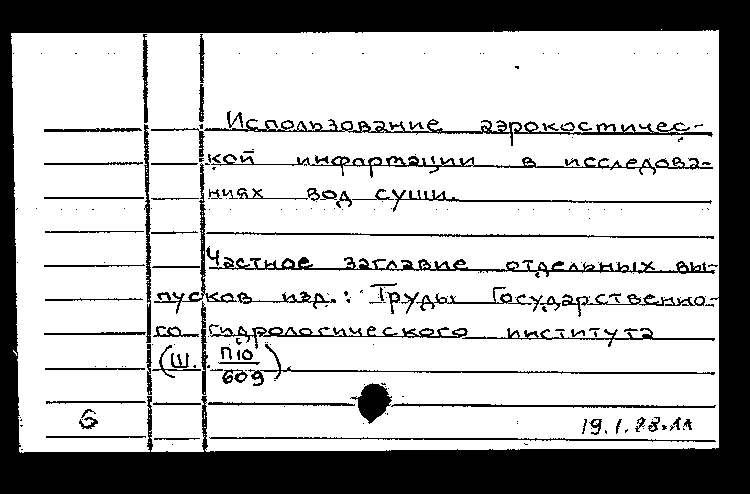 Использование аэрокостичес-
кой информации в исследова-
ниях вод суши.
Частное заглавие отдельных вы-
пусков изд.: Труды Государственно-
го гидрологического института
(Ш. П10/609).
6
19.1.88.